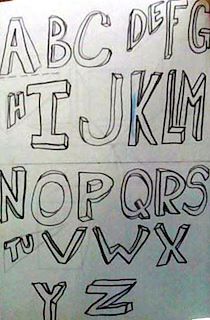 ABC DEFG
HIJKLM
NOPQRS
TUVWX
YZ